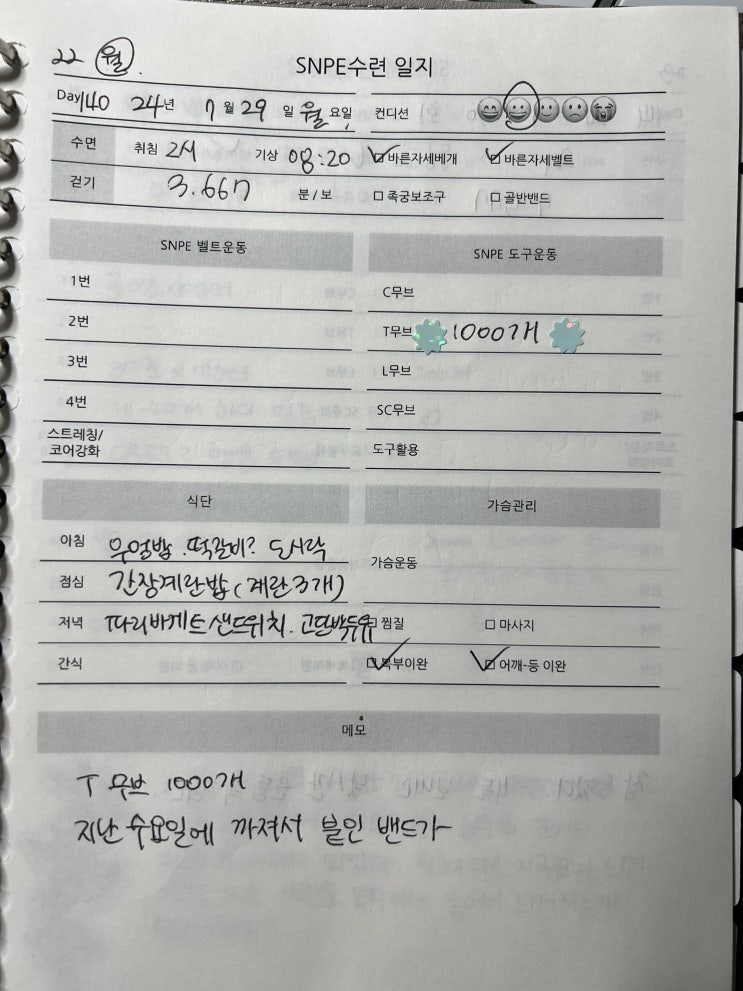 22 월.
SNPE수련 일지
Day 140 24년 7월 29일 월요일 컨디션
수면 취침 2시 기상 08:20 바른자세베개 바른자세벨트
걷기 3.667 분/보 족궁보조구 골반밴드
SNPE 벨트운동 SNPE 도구운동
1번 C무브
2번 T무브 1000개
3번 L무브
4번 SC무브
스트레칭/
코어강화 도구활용
식단 가슴관리
아침 우엉밥. 떡갈비? 도시락 가슴운동
점심 간장계란밥 (계란3개)
저녁 파리바게트샌드위치. 고단백두유 찜질 마사지
간식 복부이완 어깨-등 이완
메모
T 무브 1000개
지난 수요일에 까져서 붙인 밴드가